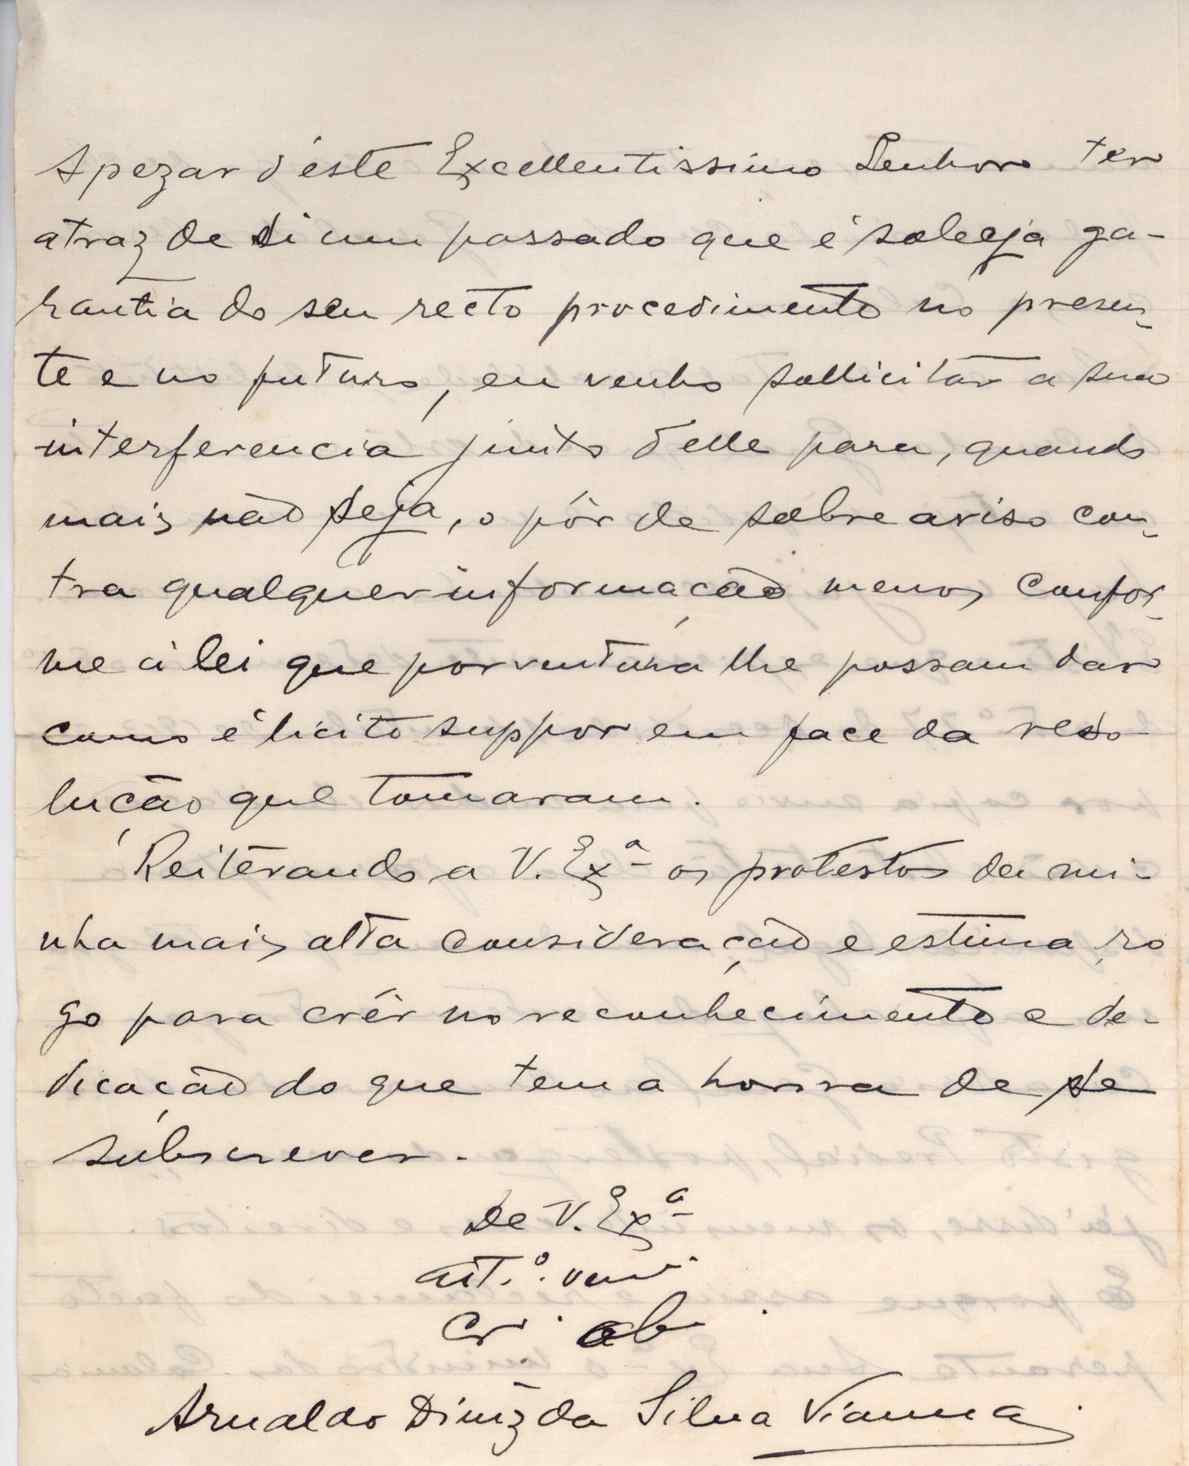 Apezar d'este Excellentissimo Senhor ter
atraz de si um passado que é sobeja ga-
rantia do seu recto procedimento no presen-
te e no futuro, eu venho sollicitar a sua
interferencia junto d'elle para, quando
mais não seja, o pôr de sobre aviso con-
tra qualquer informação menos confor-
me á lei que porventura lhe possam dar
como é licito suppor em face da reso-
lução que tomaram.
Reiterando a V. Exª os protestos da mi-
nha mais alta consideração e estima, ro
go para crêr no reconhecimento e de-
dicação do que tem a honra de se
subscrever.
De V. Exª
att.º ven.
Cr. ob.
Arnaldo Diniz da Silva Vianna